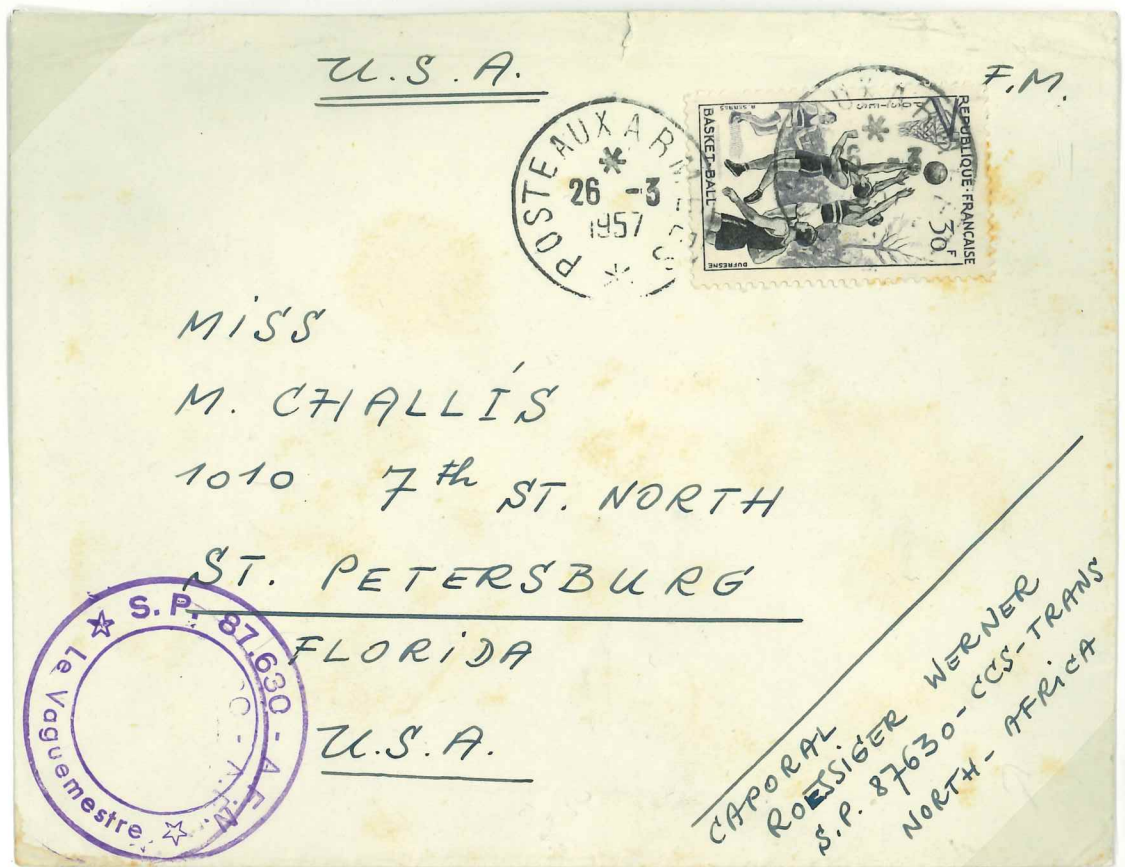 U.S.A.
F.M.
POSTE AUX ARMEES
26 -3
1957
REPUBLIQUE·FRANCAISE
POSTES
30F
BASKET-BALL
DUFRESNE
MiSS
M. CHALLIS
1010 7th ST. NORTH
ST. PETERSBURG
FLORiDA
U.S.A.
S.P. 87.630 - A.F.N.
Le Vaguemestre
CAPORAL
ROESSiGER WERNER
S.P. 87630-CCS-TRANS
NORTH-AFRiCA